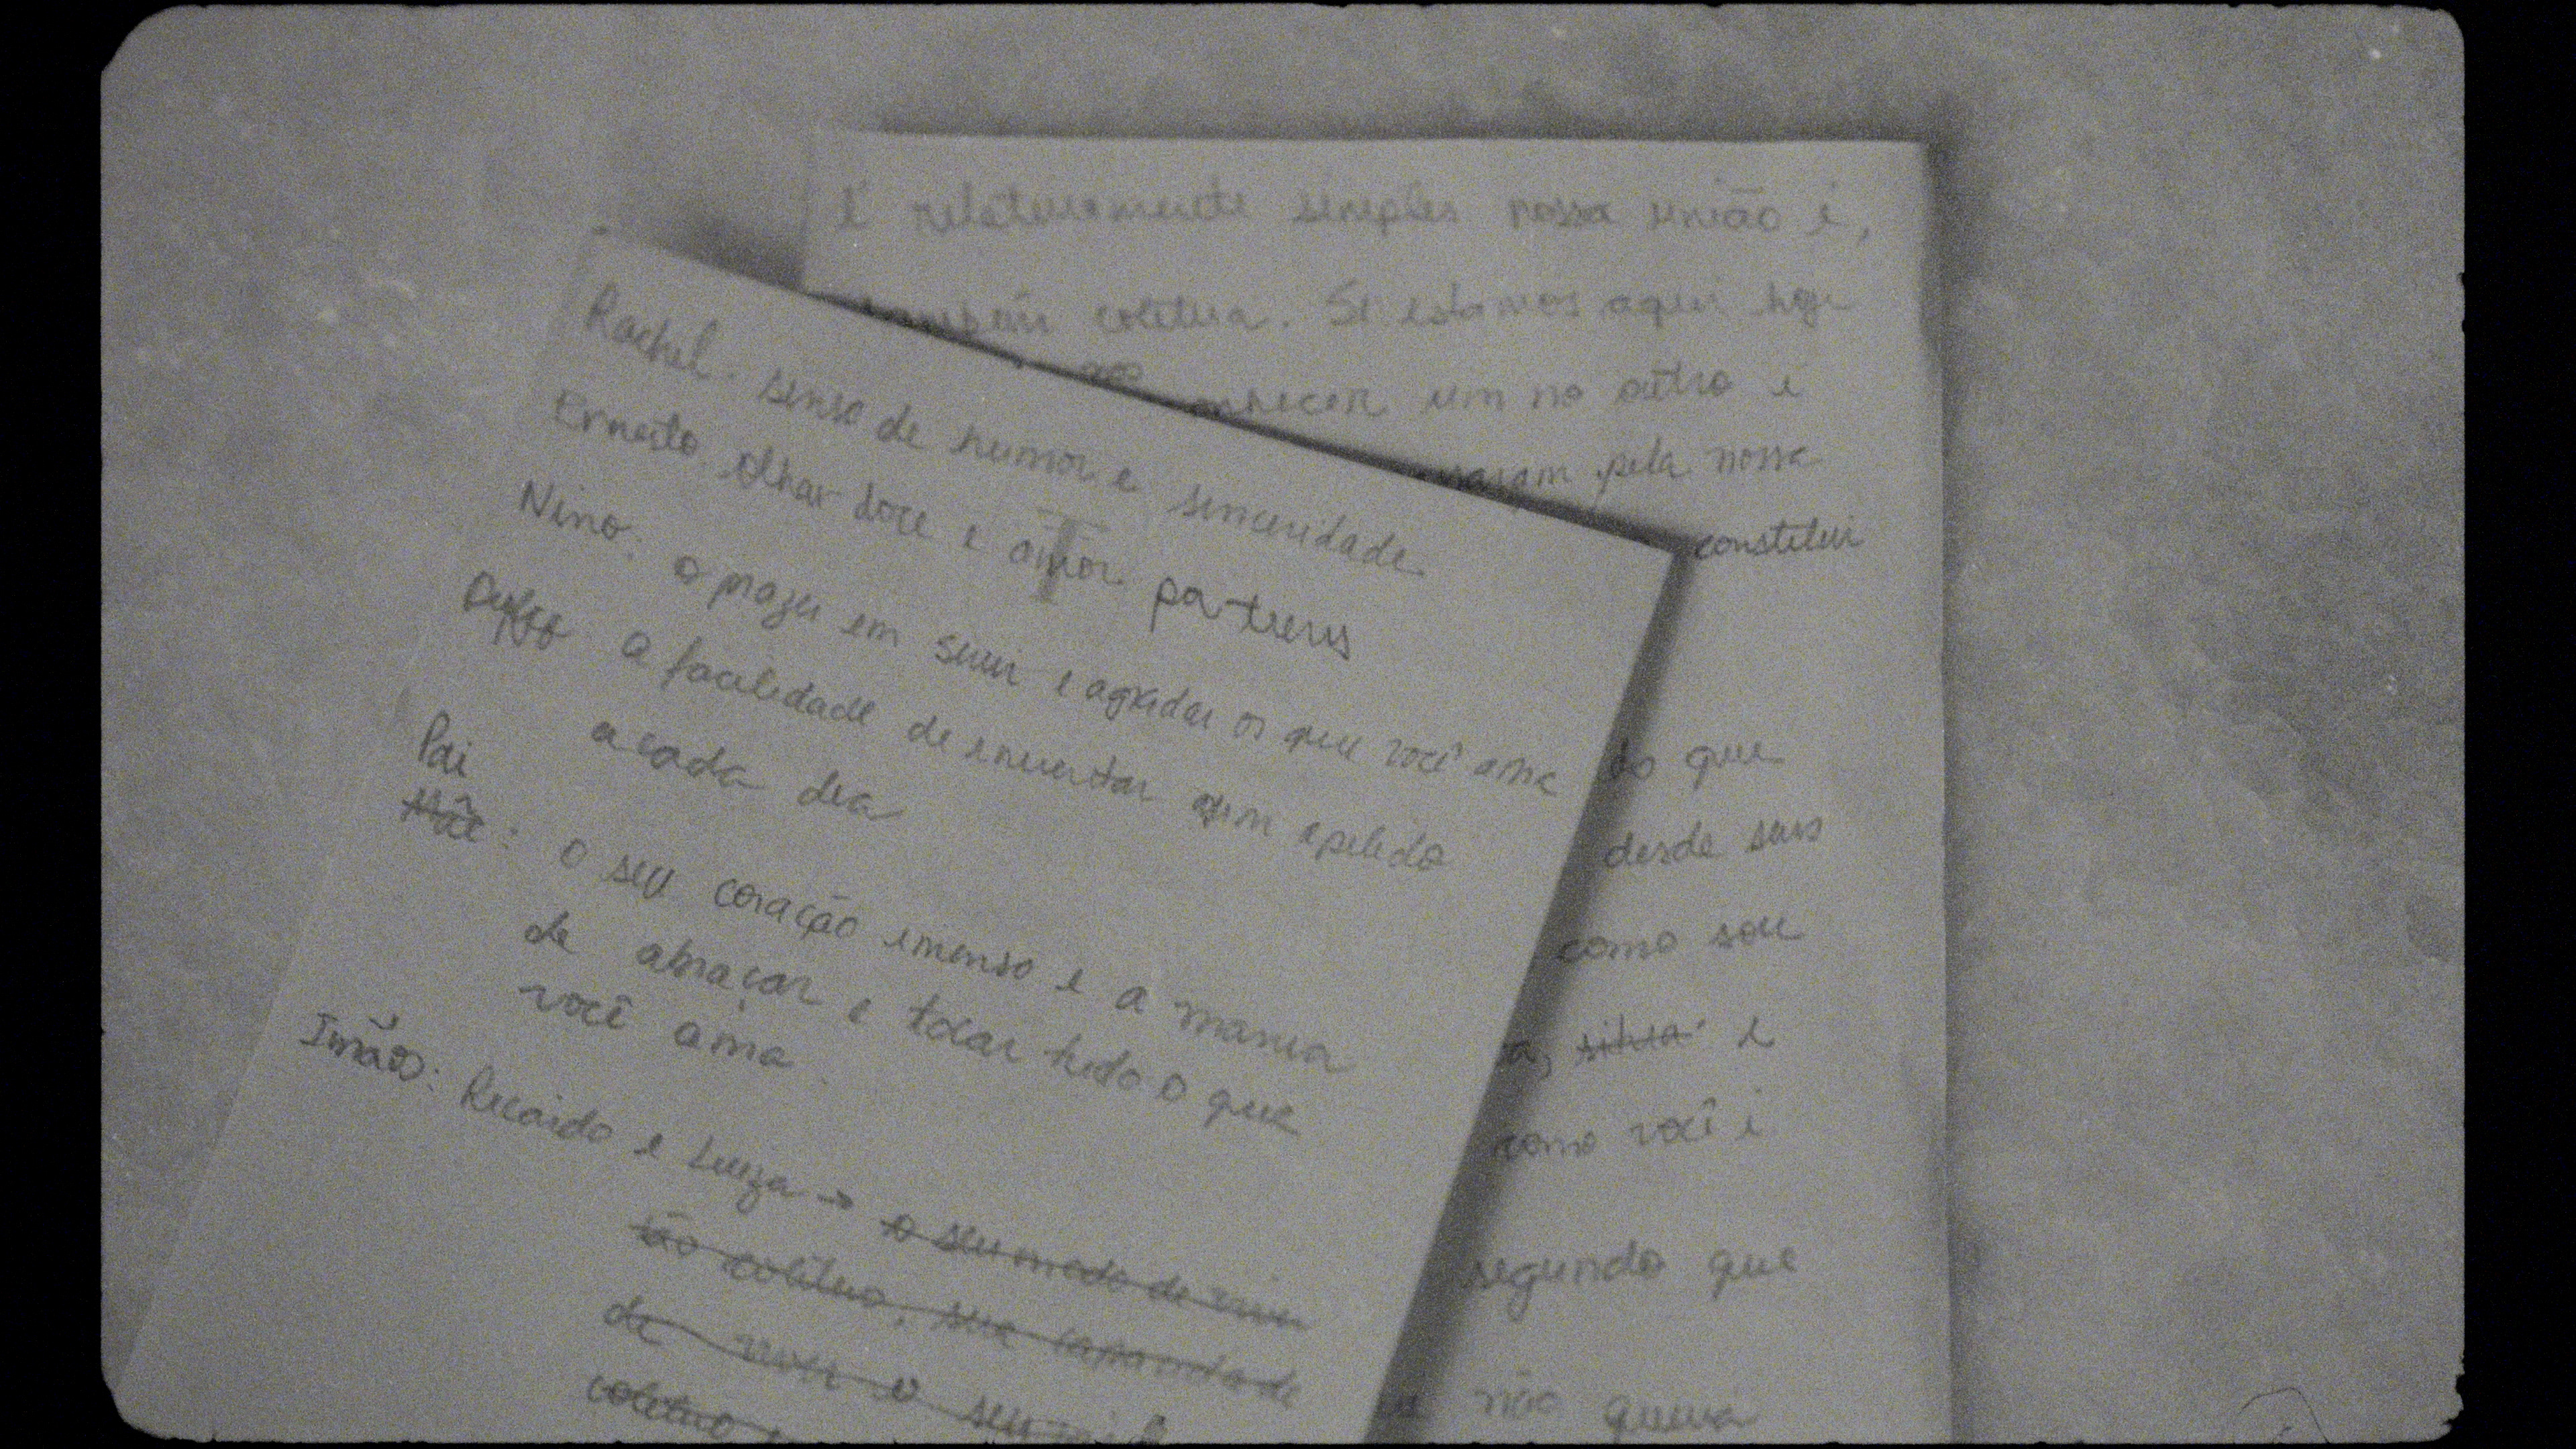 É relativamente simples nossa união é,
também coletiva. Se estamos aqui hoje
um no outro e
pela nossa
constitui
do que
desde seus
como sou
e
como você é
segundo que
não queria
Rachel. senso de humor e sinceridade
Ernesto olhar doce e amor
Nino: o prazer em servir e agradar os que você ama
a facilidade de inventar um apelido
a cada dia
Pai
Mãe: o seu coração imenso e a mania
de abraçar e tocar tudo o que
você ama.
Irmãos: Ricardo e Luiza → o seu modo de viver
tão coletivo, sua capacidade
de viver o seu
coletivo